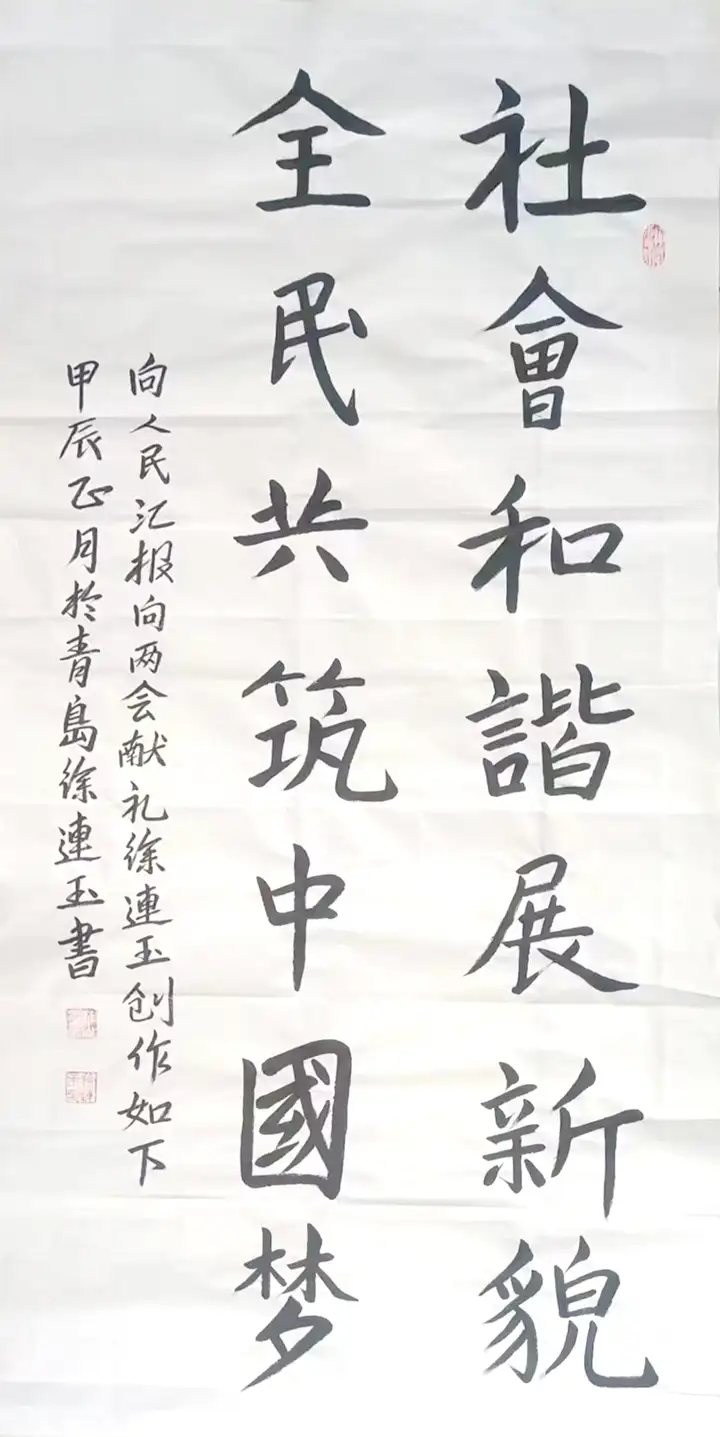 社會和諧展新貌
全民共筑中國梦
向人民汇报向两会献礼徐連玉创作如下
甲辰正月於青島徐連玉書